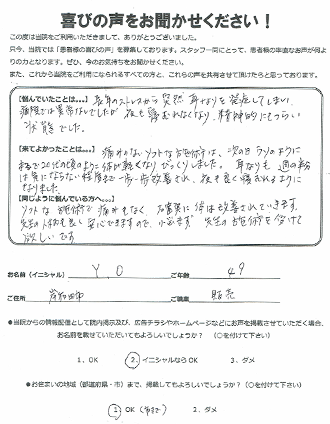 喜びの声をお聞かせください！
この度は当院をご利用いただきまして、ありがとうございました。
只今、当院では「患者様の喜びの声」を募集しております。スタッフ一同にとって、患者様の率直なお声が何より
の力となります。ぜひ、今のお気持ちをお聞かせください。
また、これから当院をご利用になられるすべての方と、これらの声を共有させて頂けたらと思っております。
【悩んでいたことは…】長年のストレスから突然耳なりを発症してしまい、
病院では異常なしでしたが 夜も寝むれなくなり、精神的にもつらい
状態でした。
【来てよかったことは…】痛みのないソフトな施術は、次の日
体が軽くなりびっくりしました。耳なりも
気にならない程度まで一歩一歩改善され、夜も良く寝れるように
なりました。
【同じように悩んでいる方へ…】
ソフトな施術で痛みもなく、確実に体は改善されていきます。
先生の人柄も良く安心できますので、 先生の施術を受けて
欲しいです
お名前（イニシャル） Y.O ご年齢 49
ご住所 岸和田市 ご職業 販売
●当院からの情報配信として院内掲示及び、広告チラシやホームページなどにお声を掲載させていただく場合、
お名前を載せていただいてもよろしいでしょうか？ （○を付けて下さい）
1．OK 2．イニシャルならOK 3．ダメ
●お住まいの地域（都道府県・市）まで、掲載してもよろしいでしょうか？（○を付けて下さい）
1．OK（市まで） 2．ダメ